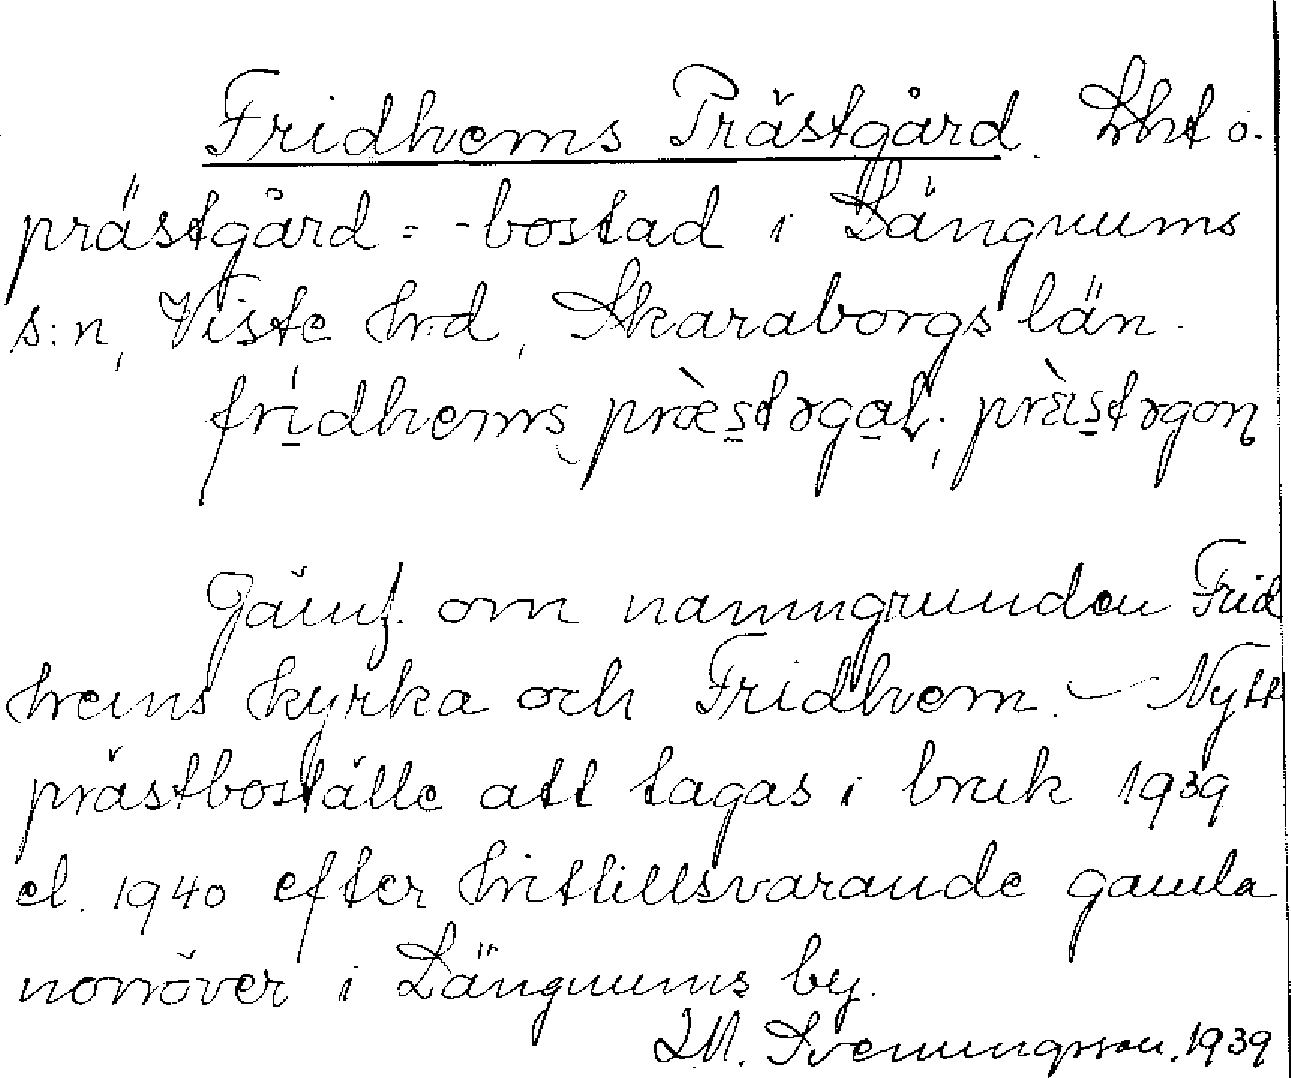 Fridhems Prästgård. Lht o.
prästgård = -bostad i Längnums
s:n, Viste hrd, Skaraborgs län.
frídhems præ̀stəgaḷ; præ̀stəgoṇ
Jämf. om namngrunden Frid
hems kyrka och Fridhem. – Nytt
prästboställe att tagas i bruk 1939
el. 1940 efter hittillsvarande gamla
norröver i Längnums by.
Svenungsson. 1939